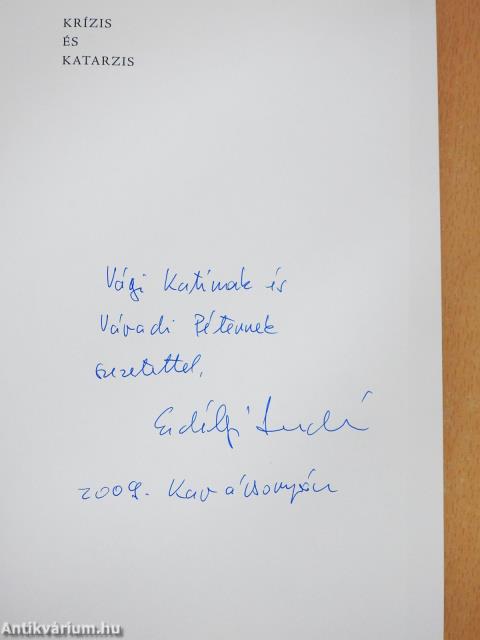 KRÍZIS
ÉS
KATARZIS
Vági Katinak és
Váradi Péternek
szeretettel,
Erdélyi
2009. Karácsonyán
Antikvárium.hu